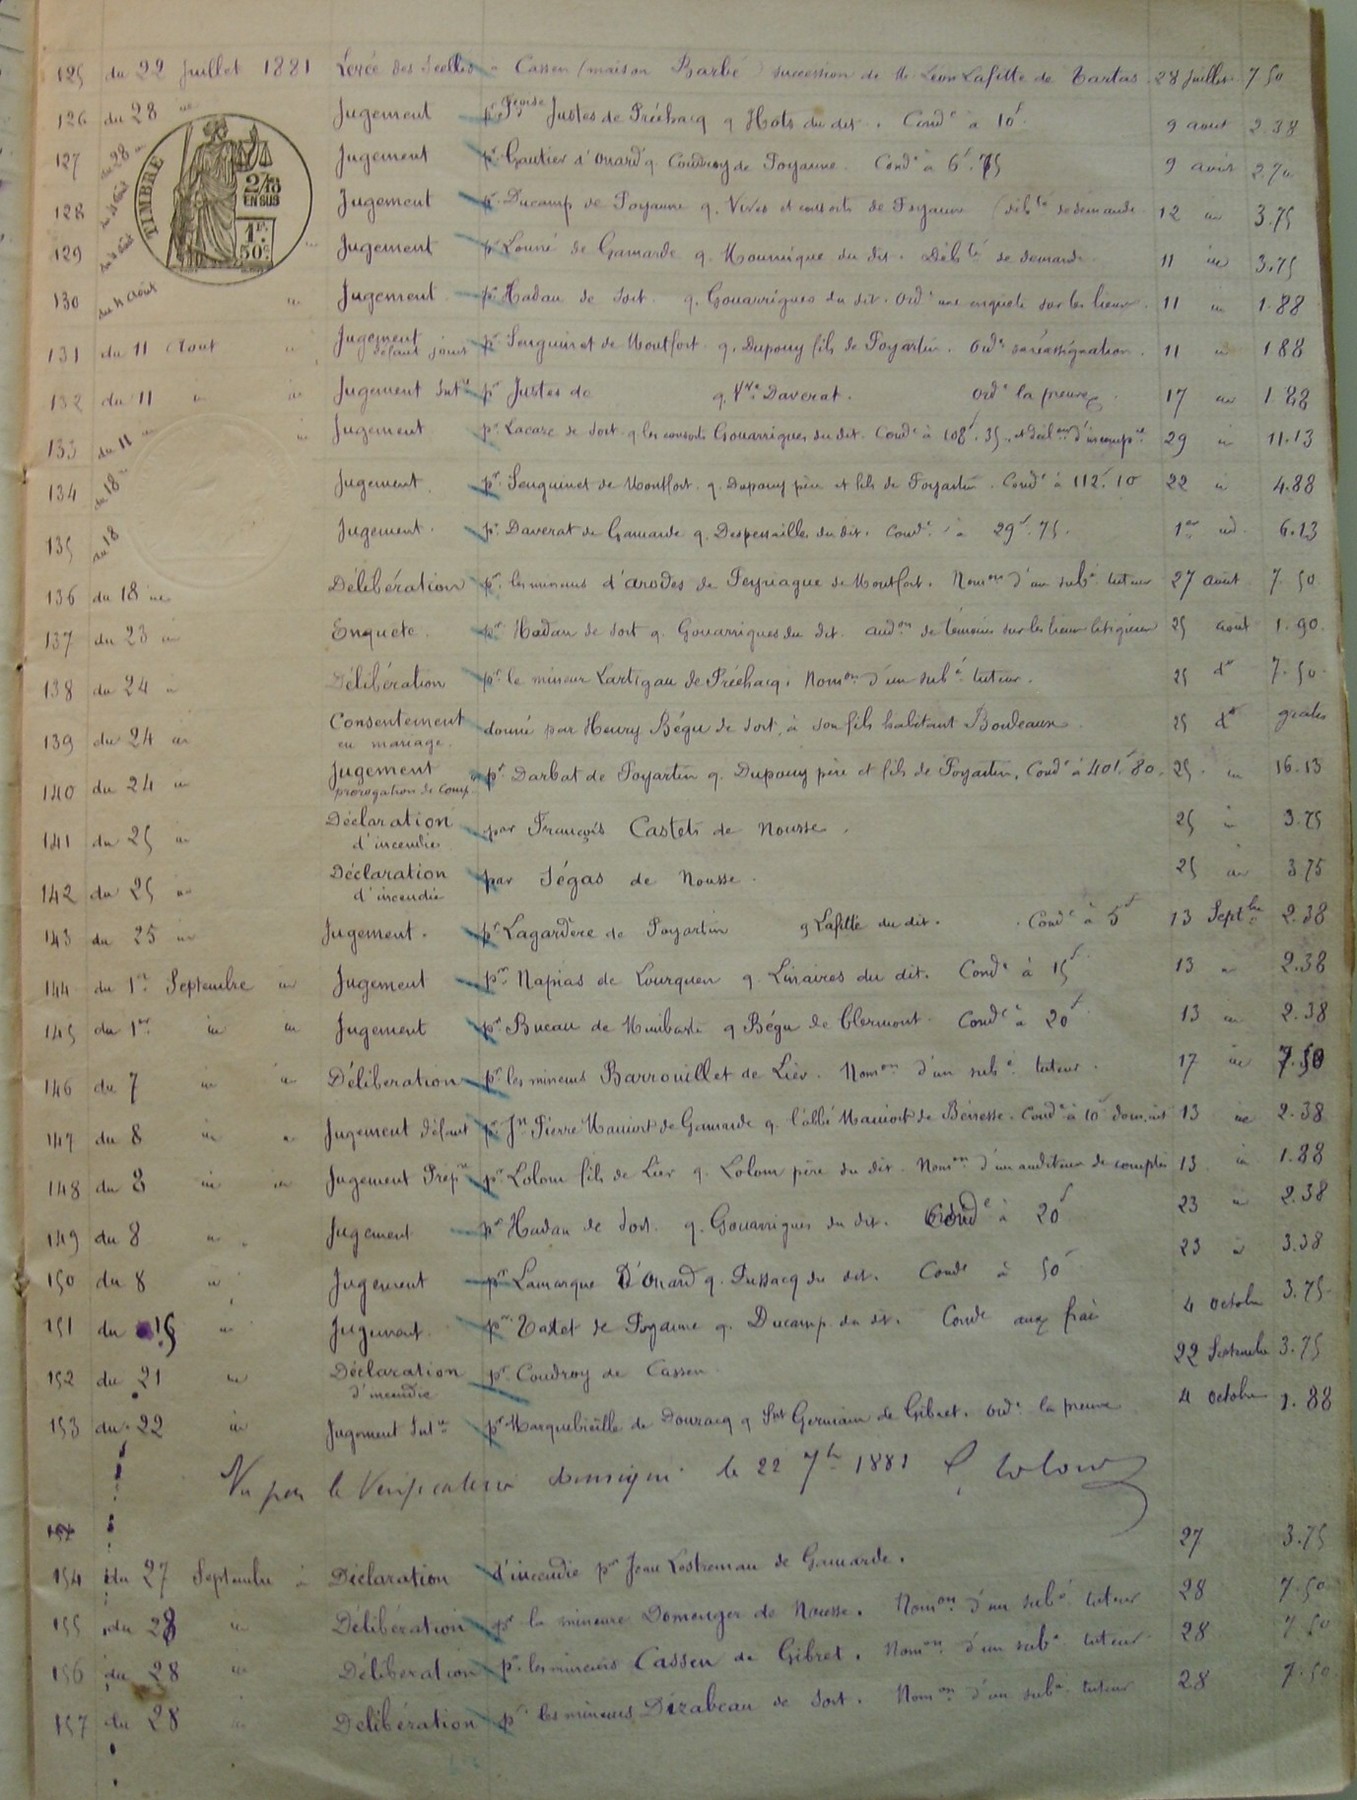 125 du 22 Juillet 1881 Levée des Scellés - Cassen (maison Barbé) succession de M. Léon Lafitte de Tartas 28 Juillet 7 50
126 du 28 " Jugement pr Justes de Préchacq q Hots du dit. Condé à 10f 9 aout 2.38
TIMBRE
2/10 EN SUS
1F. 50c
127 du 28 " Jugement pr Gautier d'Onard q. Coudroy de Poyanne. Condé à 6f.75 9 aout
128 Jugement pr Ducamp de Poyanne q. Vives et consorts de Poyanne (débté de demande 12 " 3.75
129 Jugement pr de Gamarde q. du dit. Débté de demande 11 " 3.75
130 du 4 Août " Jugement pr Hadau de Sort q. Gouarrigues du dit. Ordt une enquête sur les lieux. 11 " 1.88
131 du 11 Aout " Jugement défaut joint pr Senguinet de Montfort q. Dupouy fils de Poyartin. Ordt réassignation. 11 " 1.88
132 du 11 " " Jugement Intre pr Justes de q. Vve Daverat. Ordt la preuve. 17 " 1.88
133 du 11 " " Jugement pr Lacare de Sort q les consorts Gouarrigues du dit. Condé à 108f.35 et décl d'incompce 29 " 11.13
134 du 18 " Jugement pr Senguinet de Montfort q. Dupouy père et fils de Poyartin. Condé à 112f.10 22 " 4.88
135 du 18 Jugement. pr Daverat de Gamarde q. Despessailles du dit. Condé à 29f.75. 1er 6.13
136 du 18 " Délibération pr les mineurs d'arodes de Peyriague de Montfort. Nomon d'un subé tuteur 27 aout 7.50
137 du 23 " Enquête. pr Hadau de Sort q. Gouarrigues du dit. audon de témoins sur les lieux litigieux 25 aout 1.90
138 du 24 " Délibération pr le mineur Lartigau de Préchacq. Nomon d'un subé tuteur. 25 do 7.50
139 du 24 " Consentement en mariage. donné par Henry Bégu de Sort, à son fils habitant Bordeaux. 25 do gratis
140 du 24 " Jugement prorogation de Comp. pr Darbat de Poyartin q. Dupouy père et fils de Poyartin. Condé à 401f.80 25 " 16.13
141 du 25 " Déclaration d'incendie par François Castets de Nousse. 25 " 3.75
142 du 25 " Déclaration d'incendie par Ségas de Nousse. 25 " 3.75
143 du 25 " Jugement. pr Lagardère de Poyartin q Lafitte du dit. Condé à 5f 13 Septbre 2.38
144 du 1er Septembre " Jugement pr Napias de Lourquen q Linaires du dit. Condé à 15f 13 " 2.38
145 du 1er " " Jugement pr Bucau de Mimbaste q Bégu de Clermont. Condé à 20f 13 " 2.38
146 du 7 " " Délibération pr les mineurs Barrouillet de Lier. Nomon d'un subé tuteur. 17 " 7.50
147 du 8 " " Jugement défaut pr Jn Pierre Mauiort de Gamarde q. l'abbé Mauiort de Beïresse. Condé à 10f dom.int 13 " 2.38
148 du 8 " " Jugement Prépre pr Lolom fils de Lier q. Lolom père du dit. Nomon d'un auditeur de comptes 13 " 1.88
149 du 8 " " Jugement pr Hadau de Sort q. Gouarrigues du dit. Condé à 20f 23 " 2.38
150 du 8 " Jugement pr Lamarque D'Onard q. Dussacq du dit. Condé à 50f 23 " 3.38
151 du 15 " Jugement. pr Tastet de Poyanne q. Ducamp du dit. Condé aux frais 4 octobre 3.75
152 du 21 " Déclaration d'incendie pr Coudroy de Cassen 22 Septembre 3.75
153 du 22 " Jugement Intre pr Marquebieille de Donzacq q Snt Germain de Gibret. Ordt la preuve 4 octobre 1.88
Vu par le Vérificateur soussigné le 22 7bre 1881
154 du 27 Septembre " Déclaration d'incendie pr Jean Lestreman de Gamarde. 27 3.75
155 du 28 " Délibération pr la mineure Domenger de Nousse. Nomon d'un subé tuteur 28 7.50
156 du 28 " Délibération pr les mineurs Cassen de Gibret. Nomon d'un subé tuteur 28 7.50
157 du 28 " Délibération pr les mineurs Dizabeau de Sort. Nomon d'un subé tuteur 28 7.50